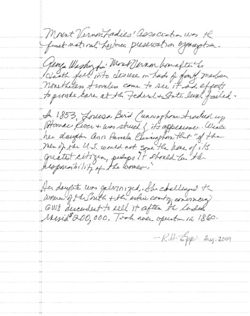 Mount Vernon Ladies' Association was the
first national historic preservation organization.
George Washington's Mount Vernon home after his
death fell into disuse in hands of family members
Northern travelers came to see it and efforts
to provide care at the Federal or State level failed.
In 1853, Louisa Bird Cunningham traveled up
Potomac River & was struck by its appearance. Wrote
her daughter Ann Pamela Cunningham that "if the
men of the U.S. would not save the home of its
greatest citizen, perhaps it should be the
responsibility of the women."
Her daughter was galvanized. She challenged the
women of the South & then the entire country, convincing
GW's descendent to sell it after the ladies
raised $200,000. Took over operation in 1860.
— R.H. Epp Aug. 2009